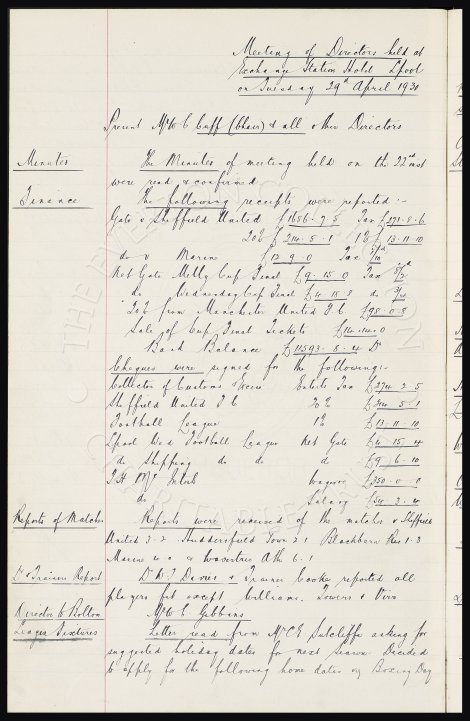 Meeting of Directors held at
Exchange Station Hotel Lpool
on Tuesday 29th April 1930
Present Mr W C Cuff (Chair) & all other Directors
Minutes
The Minutes of meeting held on the 22nd inst
were read & confirmed
Finance
The following receipts were reported :-
Gate v Sheffield United £1656. 7. 5 Tax £271. 8. 6
20% £214. 5. 1 1% £13. 11. 10
do v Marine £12. 9. 0 Tax
Net Gate Cup Final £9. 15. 0 Tax
do Wednesday Cup Final £4. 15. 8 do
20% from Manchester United F C £98. 0. 8
Sale of Cup Final Tickets £14. 14. 0
Bank Balance £11593. 8. 4 Dr
Cheques were signed for the following:-
Collector of Customs & Excise Ents Tax £274. 2. 5
Sheffield United F C 20% £214. 5. 1
Football League 1% £13. 11. 10
Lpool Wed Football League Net Gate £4. 15.
do Shipping do do £9. 6. 10
T. H. McIntosh Wages £350. 0. 0
do Salary
Reports of Matches
Reports were received of the matches v Sheffield
United 3-2 Huddersfield Town 2-1 Blackburn Res 1-3
Marine 4-0 & Wavertree Ath 6-1
Dr & Trainers Report
Dr W J Davies & Trainer Cooke reported all
players fit except Williams. Towers & Virr
Director to Bolton
Mr W E Gibbins
League Fixtures
Letter read from Mr C E Sutcliffe asking for
suggested holiday dates for next season. Decided
to apply for the following home dates viz Boxing Day